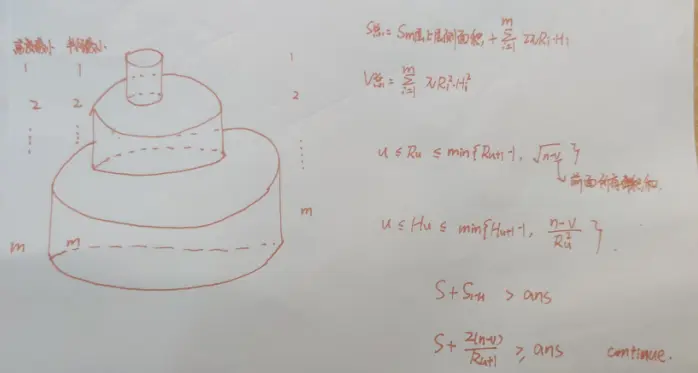 高度最小 半径最小
1 1 1
2 2 2
m m m
S总 = Sm
+ \sum_{i=1}^{m} 2πRi·Hi
V总 = \sum_{i=1}^{m} πRi²·Hi²
u ≤ Ru ≤ min{Ru+1-1, √n-v }
前面所有体积和
u ≤ Hu ≤ min{Hu+1-1, \frac{n-v}{Ru²} }
S + S1-u > ans
S + \frac{2(n-v)}{Ru+1} ≥ ans continue.